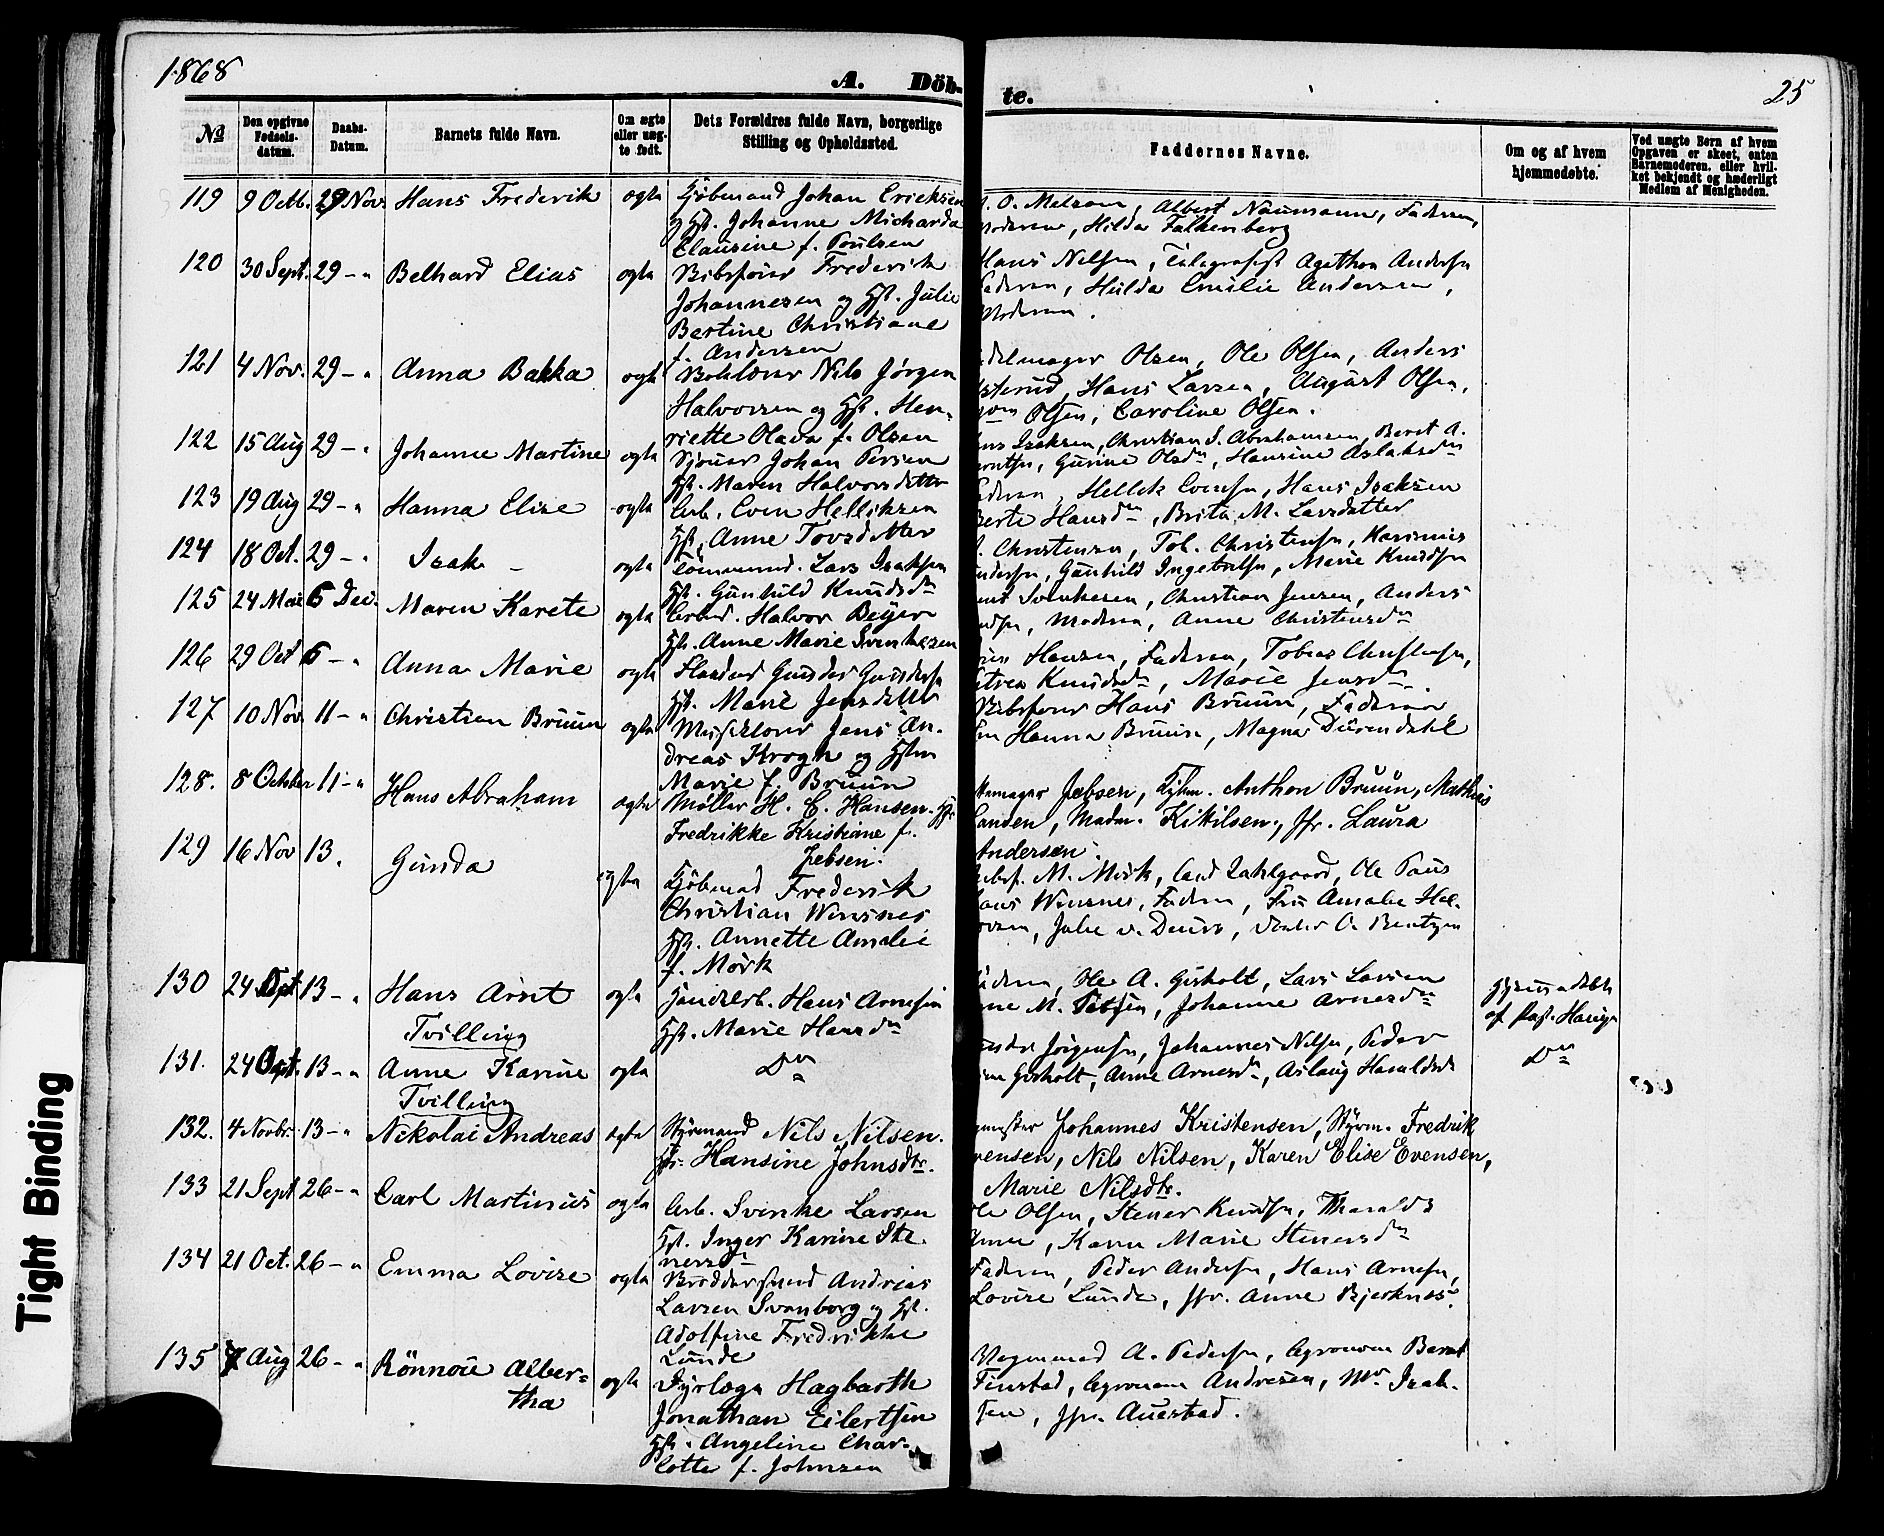 1868
A. Döb-
te.
25
No
Den opgivne Fødsels-datum.
Daabs-Datum.
Barnets fulde Navn.
Om ægte eller uæg-te født.
Dets Forældres fulde Navn, borgerlige Stilling og Opholdssted.
Faddernes Navne.
Om og af hvem hjemmedøbte.
Ved uægte Børn af hvem Opgaven er skeet, enten Barnemoderen, eller hvil-ket bekjendt og hæderligt Medlem af Menigheden.
119 9 Octb. 29 Nov. Hans Frederik ogta Kjøbmand Johan Ericksen
og Hst. Johanne Micharda
Clausine f. Poulsen
O. Melsom, Albert Naumann, Faderen,
Moderen, Hilda Falkenberg
120 30 Sept. 29 - " Belhard Elias ogta Bibsfører Frederik
Johannesen og Hst. Julie
Bertine Christiane
f. Andersen
Hans Nilsen, Telegrafist Agathon Andersen
Faderen, Hulda Emilie Andersen,
Moderen.
121 4 Nov. 29 - " Anna Bakka ogta Nils Jørgen
Halvorsen og Hst. Hen-
riette Olava f. Olsen
Olsen, Ole Olsen, Anders
Hans Larsen, August Olsen,
Olsen, Caroline Olsen.
122 15 Aug 29 - " Johanne Martine ogta Johan Persen
Hst. Maren Halvorsdatter
Isaksen, Christian I. Abrahamsen, Beret A.
Gurine Olsdn, Hansine Aslaksdn
123 19 Aug 29 - " Hanna Elise ogta Arb. Even Helliksen
Hst. Anne Tovsdatter
Faderen, Hellek Evensen, Hans Isaksen
Berte Hansdn, Brita M. Larsdatter
124 18 Oct. 29 - " Isak - ogta Tømmermd. Lars Isaksen
Hst. Gunhild Knudsdn
Christensen, Tob. Christensen, Karinius
Andersen, Gunhild Ingebretsen, Marie Knudsen
125 24 Mai 6 Dec. Maren Karete ogta Arbmd. Halvor Beyer
Hst. Anne Marie Svenkesen
Svenkesen, Christian Jensen, Anders
Moderen, Anne Christensdn
126 29 Oct 6 - " Anna Marie ogta Gunder Gundersen
Hst. Marie Jensdatter
Hansen, Faderen, Tobias Christensen,
Knudsdn, Marie Jensdn.
127 10 Nov 11 - " Christian Bruun ogta Jens An-
dreas Krogh og Hstru
Marie f. Bruun
Bibsfører Hans Bruun, Faderen
Hanna Bruun, Magna Durendahl
128. 8 October 11 - " Hans Abraham ægte Møller H. C. Hansen. Hst.
Fredrikke Kristiane f.
Jebsen.
Jebsen, Kjbm. Anthon Bruun, Mathias
Landen, Madm. Kittilsen, Jfr. Laura
Andersen.
129 16 Nov 13. Gunda ogta Kjøbmad Frederik
Christian Winsnes
Hst. Annette Amalie
f. Mørk
M. Mørk, Cand Dahlgaard, Ole Paus
Hans Winsnes, Faderen, Fru Amalie Hal-
vorsen, Julie v. Deurs, O. Bentzen
130 24 Spt 13 - " Hans Arnt ogta Hans Arnesen
Tvilling Hst. Marie Hansdn
Faderen, Ole A. Gisholt, Lars Larsen
Johanne Arnesdn
Hjemmedøbt
af Past. Hansen
131. 24 Spt. 13 - " Anne Karine ogta Do
Tvilling
Jørgensen, Johannes Nilsen, Peder
Gisholt, Anne Arnesdn, Aslaug Haraldsd
Do
132. 4 Novbr. 13 - " Nikolai Andreas ægte Styrmand Nils Nilsen.
Hst. Hansine Johnsdtr.
Johannes Kristensen, Styrm. Fredrik
Evensen, Nils Nilsen, Karen Elise Evensen,
Marie Nilsdtr.
133 21 Sept 26 - " Carl Martinius ogta Arb. Svenke Larsen
Hst. Inger Karine Ste-
nersdn
Ole Olsen, Stener Knudsen, Tharald
Karen Marie Stenersdn
134 21 Oct. 26 - " Emma Lovise ogta Andreas
Larsen Svanborg og Hst.
Adolfine Fredrikke
Lunde
Faderen, Peder Andersen, Hans Arnesen,
Lovise Lunde, Jfr. Anne Bjerknes.
135 7 Aug 26 - " Rönnou Alber=
tha ogta Dyrlæge Hagbarth
Jonathan Eilertsen
Hst. Angeline Char-
lotte f. Johnsen
A. Pedersen, Agronom Bernt
Finstad, Agronom Andresen, Mr. Isak-
sen, Jfr. Auestad.
Tight Binding